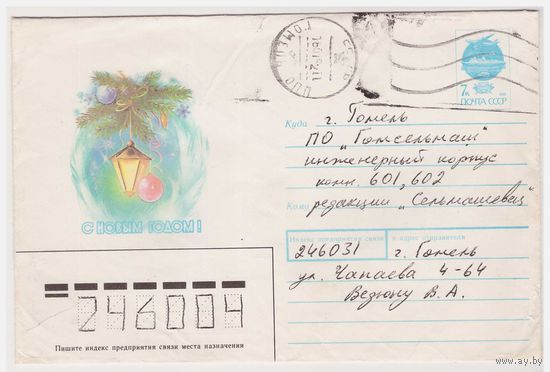 7к
ПОЧТА СССР
Куда г. Гомель
ПО „Гомсельмаш"
инженерный корпус
комн. 601, 602
Кому редакции „Сельмашевец"
С НОВЫМ ГОДОМ!
Индекс предприятия связи и адрес отправителя
246031 г. Гомель
ул. Чапаева 4-64
В. А.
246004
Пишите индекс предприятия связи места назначения
www.ay.by